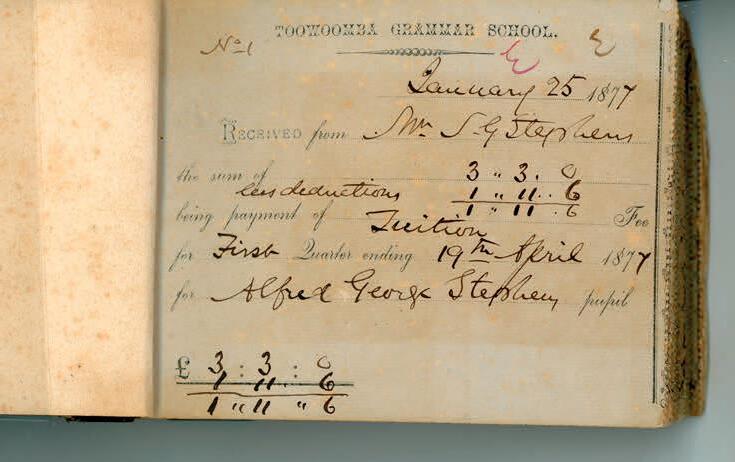 TOOWOOMBA GRAMMAR SCHOOL.
No 1
January 25 1877
RECEIVED from Mr S. G Stephens
the sum of 3 " 3 . 0
less deductions 1 " 11 . . 6
1 " 11 . 6
being payment of Tuition Fee
for First Quarter ending 19th April 1877
for Alfred George Stephens pupil
£ 3 : 3 : 0
1 11 . 6
1 " 11 " 6